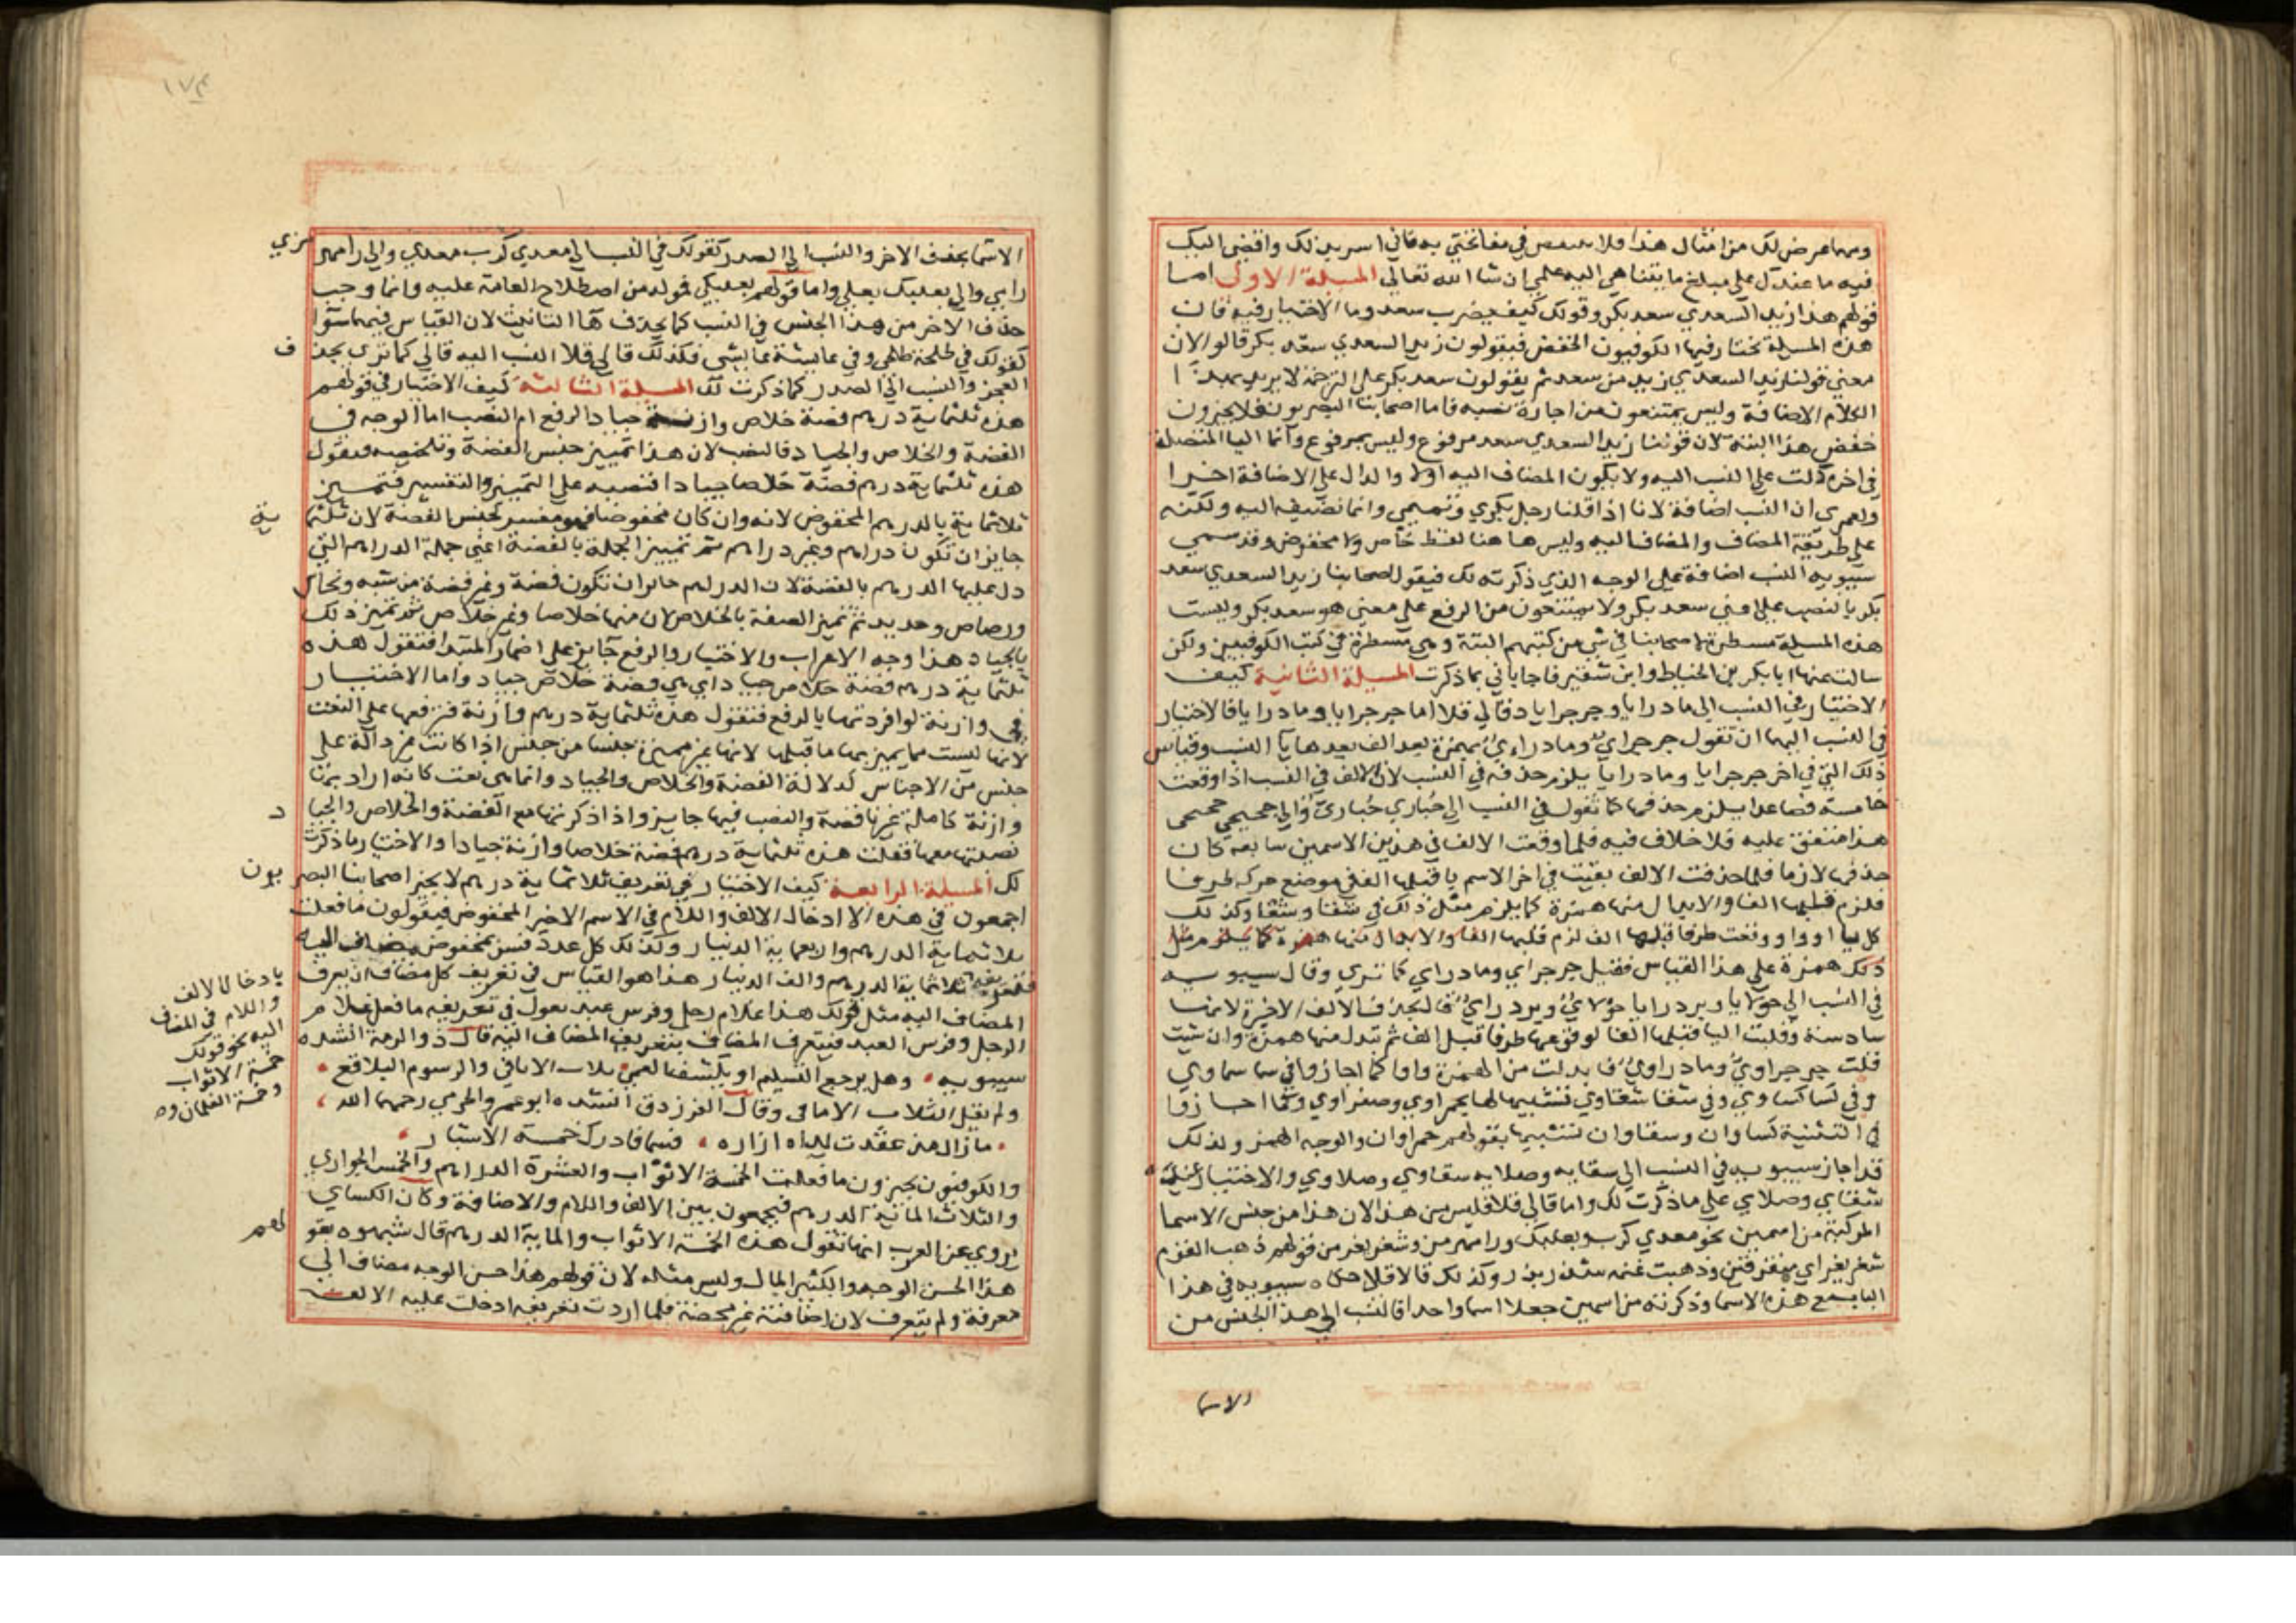 ومهما عرض لك من امثال هذا فلا في مفاتحتي به فاني اسر بذلك واقضي اليك
فيه ما عندك على مبلغ ما يتناهى اليه علمي ان شا الله تعالى المسيلة الاولى اما
قولهم هذا زيد السعدي سعد بكر وقولك كيف يضرب سعد وما الاختيار فيه فان
هذه المسيلة تختار فيها الكوفيون الخفض فيقولون زيد السعدي سعد بكر قالوا لان
معنى قولنا زيد السعدي زيد من سعد ثم يقولون سعد بكر على الترجمة لا يريد
الكلام الاضافة وليس يمتنعون من اجازة نصبه فاما اصحابنا البصريون فلا يجيزون
خفض هذا البتة لان قولنا زيد السعدي سعد مرفوع وليس بمرفوع وانما اليا المتصلة
في اخره دلت على النسب اليه ولا يكون المضاف اليه اولا والدال على الاضافة اخرا
ولعمري ان النسب اضافة لانا اذا قلنا رجل بكري وتميمي وانما نضيفه اليه ولكنه
على طريقة المضاف والمضاف اليه وليس ها هنا لفظ خاص ولا مخفوض وقد سمى
سيبويه النسب اضافة على الوجه الذي ذكرته لك فيقول اصحابنا زيد السعدي سعد
بكر بالنصب على اعني سعد بكر ولا يمتنعون من الرفع على معنى هو سعد بكر وليست
هذه المسيلة مسطرة لاصحابنا في شي من كتبهم البتة وهي مسطرة في كتب الكوفيين ولكن
سالت عنها ابا بكر بن الخياط وابن شقير فاجاباني بما ذكرت المسيلة الثانية كيف
الاختيار في النسب الى مادرايا وجرجرايا دقالي قلا اما جرجرايا ومادرايا فالاختيار
في النسب اليهما ان تقول جرجراي ومادراءي بهمزة بعد الف بعدها يا النسب وقياس
ذلك التي في اخر جرجرايا ومادرايا يلزم حذفه في النسب لان الالف في النسب اذا وقعت
خامسة فصاعدا يلزم حذفها كما تقول في النسب الى حباري حباري والى جحجبى جحجبي
هذا متفق عليه فلا خلاف فيه فلما وقعت الالف في هذين الاسمين سابعة كان
حذفها لازما فلما حذفت الالف بقيت في اخر الاسم يا قبلها الف في موضع حركة طرفا
فلزم قلبها الفا والابدال منها همزة كما يلزم مثل ذلك في شقا وشقا وكذلك
كل يا او واو وقعت طرفا قبلها الف لزم قلبها الفا والابدال منها همزة كما يلزم مثل
ذلك همزة على هذا القياس فقيل جرجراي ومادراي كما تري وقال سيبويه
في النسب الى حولايا وبردرايا حولايُ وبردرايُ فالحذف الالف الاخيرة لانها
سادسة وقلبت اليا قبلها الفا لوقوعها طرفا قبل الف ثم تبدل منها همزة وان شيت
قلت جرجراوي ومادراوي فابدلت من الهمزة واوا كما اجازوا في سما سماوي
وفي كسا كساوي وفي شقا شقاوي تشبيها لها بحمراوي وصفراوي وكما اجازوا
في التثنية كساوان وسقاوان تشبيها بقولهم حمراوان والوجه الهمز ولذلك
قد اجاز سيبويه في النسب الى سقايه وصلايه سقاوي وصلاوي والاختيار عنده
سقاي وصلاي على ما ذكرت لك واما قالي قلا فليس من هذا لان هذا من جنس الاسما
المركبة من اسمين نحو معدي كرب وبعلبك ورامهرمز وشغر بغر من قولهم ذهب القوم
شغر بغر اي متفرقين وذهبت غنمه شذر بذر وكذلك قالاقلا حكاه سيبويه في هذا
الباب مع هذه الاسما وذكر انه من اسمين جعلا اسما واحدا فالنسب الى هذا الجنس من
الاسما
١٧٤
الاسما بحذف الاخر والنسب الى الصدر كقولك في النسب الى معدي كرب معدي والى رامهر مزي
رامي والى بعلبك بعلي واما قولهم بعلبكي فمولد من اصطلاح العامة عليه وانما وجب
حذف الاخر من هذا الجنس في النسب كما يحذف هاالتانيث لان القياس فيهما سوا
كقولك في طلحة طلحي وفي عايشة عايشي فكذلك قالي قلا النسب اليه قالي كما تري بحذ ف
العجز والنسب الى الصدر كما ذكرت لك المسيلة الثالثة كيف الاختيار في قولهم
هذه ثلثماية درهم فضة خلاص وازنة جيادا الرفع ام النصب اما الوجه في
الفضة والخلاص والجياد فالنصب لان هذا تمييز جنس الفضة وتلخيصه فيقول
هذه ثلثماية درهم فضة خلاصا جيادا فتنصبه على التمييز والتفسير فتمييز
ثلاثماية بالدرهم المخفوض لانه وان كان مخفوضا فهو مفسر لجنس الفضة لان ثلثما ية
جايز ان تكون دراهم وغير دراهم ثم تمييز الجملة بالفضة اعني جملة الدراهم التي
دل عليها الدرهم بالفضة لان الدراهم جايز ان تكون فضة وغير فضة من شبه ونحاس
ورصاص وحديد ثم تميز الصفة بالخلاص لان منها خلاصا وغير خلاص ثم تميز ذلك
بالجياد هذا وجه الاعراب والاختيار والرفع جايز على اضمار المبتدا فتقول هذه
ثلثماية درهم فضة خلاص جياد اي هي فضة خلاص جياد واما الاختيار
في وازنة لو افردتها بالرفع فتقول هذه ثلثماية درهم وازنة فترفعها على النعت
لانها ليست مما يميز بها ما قبلها لانها غير مميزة جنسا من جنس اذا كانت غير دالة على
جنس من الاجناس كدلالة الفضة والخلاص والجياد وانما هي نعت كانه اراد بها
وازنة كاملة غيرها فضة والنصب فيها جايز واذا ذكرتها مع الفضة والخلاص والجيا د
نصبتها معها فقلت هذه ثلثماية درهم فضة خلاصا وازنة جيادا والاختيار ما ذكرت
لك المسيلة الرابعة كيف الاختيار في تعريف ثلاثماية درهم لا يجيز اصحابنا البصر يون
اجمعون في هذه الا ادخال الالف واللام في الاسم الاخير المخفوض فيقولون ما فعلت
ثلاثماية الدرهم والاربعماية الدينار وكذلك كل عدد فسر بمخفوض مضاف اليه
فتعريفه ثلاثماية الدرهم والف الدينار هذا هو القياس في تعريف كل مضاف ان يعرف
بادخال الالف
واللام في المضاف
اليه نحو قولك
خمسة الاثواب
وخمسة الغلمان
المضاف اليه مثل قولك هذا غلام رجل وفرس عبد تقول في تعريفه ما فعل غلام
الرجل وفرس العبد فيتعرف المضاف بتعريف المضاف اليه قال ذو الرمة انشده
سيبويه وهل يرجع التسليم او يكشف العمى ثلاث الاثافي والرسوم البلاقع
ولم يقل الثلاث الاثافي وقال الفرزدق انشده ابو عمرو الجرمي رحمهما الله
ما زال من عقدت يداه ازاره فسما فادرك خمسة الاشبار
والكوفيون يجيزون ما فعلت الخمسة الاثواب والعشرة الدراهم والخمس الجواري
والثلاث الماية الدرهم فيجمعون بين الالف واللام والاضافة وكان الكساي
يروي عن العرب انها تقول هذه الخمسة الاثواب والماية الدرهم قال شبهوه بقو لهم
هذا الحسن الوجه والكثير المال وليس مثله لان قولهم هذا حسن الوجه مضاف الى
معرفة ولم يتعرف لان اضافته غير محضة فلما اردت تعريفه ادخلت عليه الالف